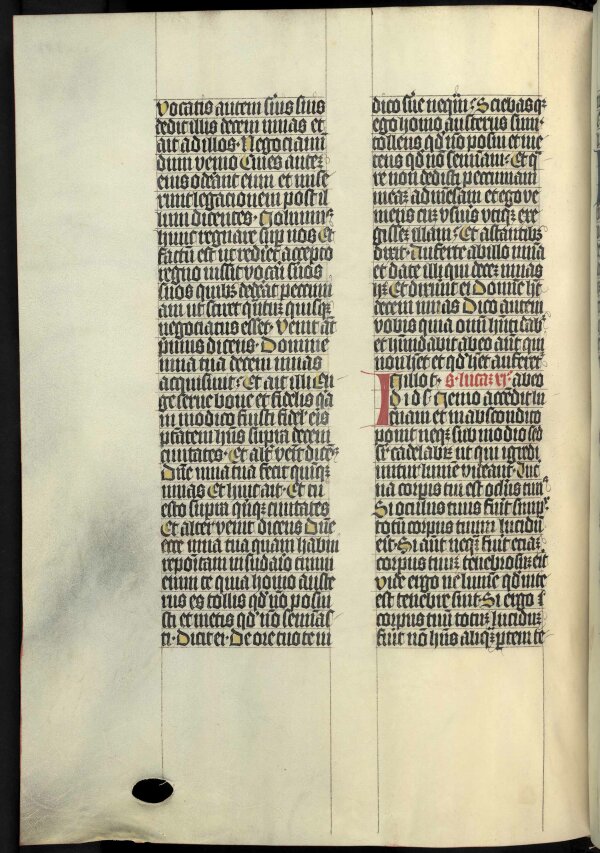 Vocatis autem suis suis
dedit illis decem mnas et
ait ad illos· Negociamī
dum venio Ciues autē
eius oderant eum et mise
runt legacionem post il
lum dicentes· Nolumus
hunc regnare sup nos Et
factū est ut rediet accepto
regno iussit vocari suos
suos quibꝫ dedat pecuni
am ut sciret quātū quisqꝫ
negociatus esset· Venit aūt
pͥmus dicens· Domine
mna tua decem mnas
acquisiuit· Et ait illi Eu
ge serue bone et fidelis qͣa
in modico fuisti fidel' eris
ptātem hn̄s supra decem
ciuitates· Et alt' venit dicēs
Dn̄e mna tua fecit quīqꝫ
mnas Et huic ait· Et tu
esto supra qūqꝫ ciuitates
Et alter venit dicens Dn̄e
ecce mna tua quam habui
repositam in sudario timui
enim te quia homo auste
rus es tollis qd' nō posui
sti et metis qd' nō seminas
ti· Dicit ei· De ore tuo te iu
dico sͣue neqͣm· Sciebas qꝫ
ego homo austerus sum·
tollens qd' nō posui et me
tens qd' nō seminaui· Et qͣ
re non dedisti pecuniam
meā ad mēsam et ego ve
niens cū vsuris vtiqꝫ exe
gissē illam· Et astantibꝫ
dixit· Auferte ab illo mnā
et date illi qui decē mnas
hꝫ Et dixerūt ei Domine hꝫ
decem mnas Dico autem
vobis quia omī hn̄ti dabꝰ
et hūndabit ab eo aūt qui
non hꝫ et qd' hꝫ auferetꝰ
In illo t· s· lucā xi· ab eo
D i d s· Nemo accēdit lu
cernam et in abscondito
ponit neqꝫ sub modio sed
sͣ cādelabrū ut qui ingredi
untur lumen videant· Luc
na corpus tui est oculꝰ tuꝰ
Si oculus tuus fūit simpl'
totū corpus tuum lucidū
erit· Si aūt neqͣ fūit eciā
corpus tuū tenebrosū erit
Vide ergo ne lumē qd' in te
est tenebre sint· Si ergo ꝰ
corpus tuū totū lucidū
fūit nō hn̄s aliqͣ ptem te